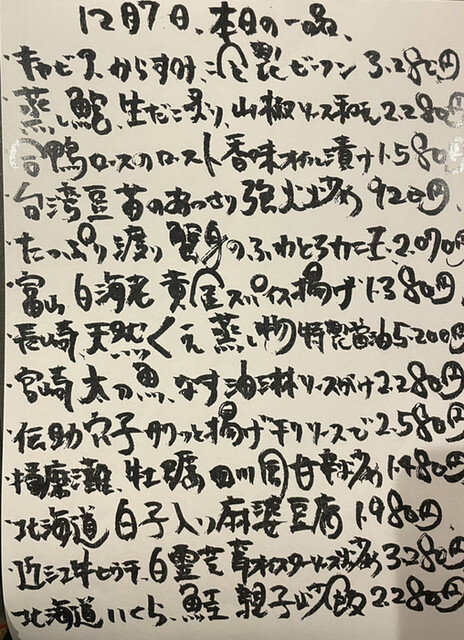 12月7日、本日の一品、
・キャビア、からすみ、冷製ビーフン 3.280円
・蒸し鮑、生だこ炙り、山椒ソース和え 2.280円
・合鴨ロースのロースト香味オイル漬け 1.580円
・台湾豆苗のあっさり強火炒め 920円、
・たっぷり渡り蟹身のふわとろカニ玉、2.070円
・富山 白海老 黄金スパイス揚げ 1.380円
・長崎、天然くえ蒸し物 特製醤油 5200円
・宮崎 太刀魚、なす油淋ソースがけ 2.280円
・伝助穴子 カリッと揚げ チリソースで 2.580円
・播磨灘、牡蠣 四川風甘辛炒め 1.480円
・北海道 白子入り麻婆豆腐 1.980円
・近江牛センボン、白霊茸オイスターソース炒め 3.280円
・北海道いくら、鮭 親子炒飯 2.280円